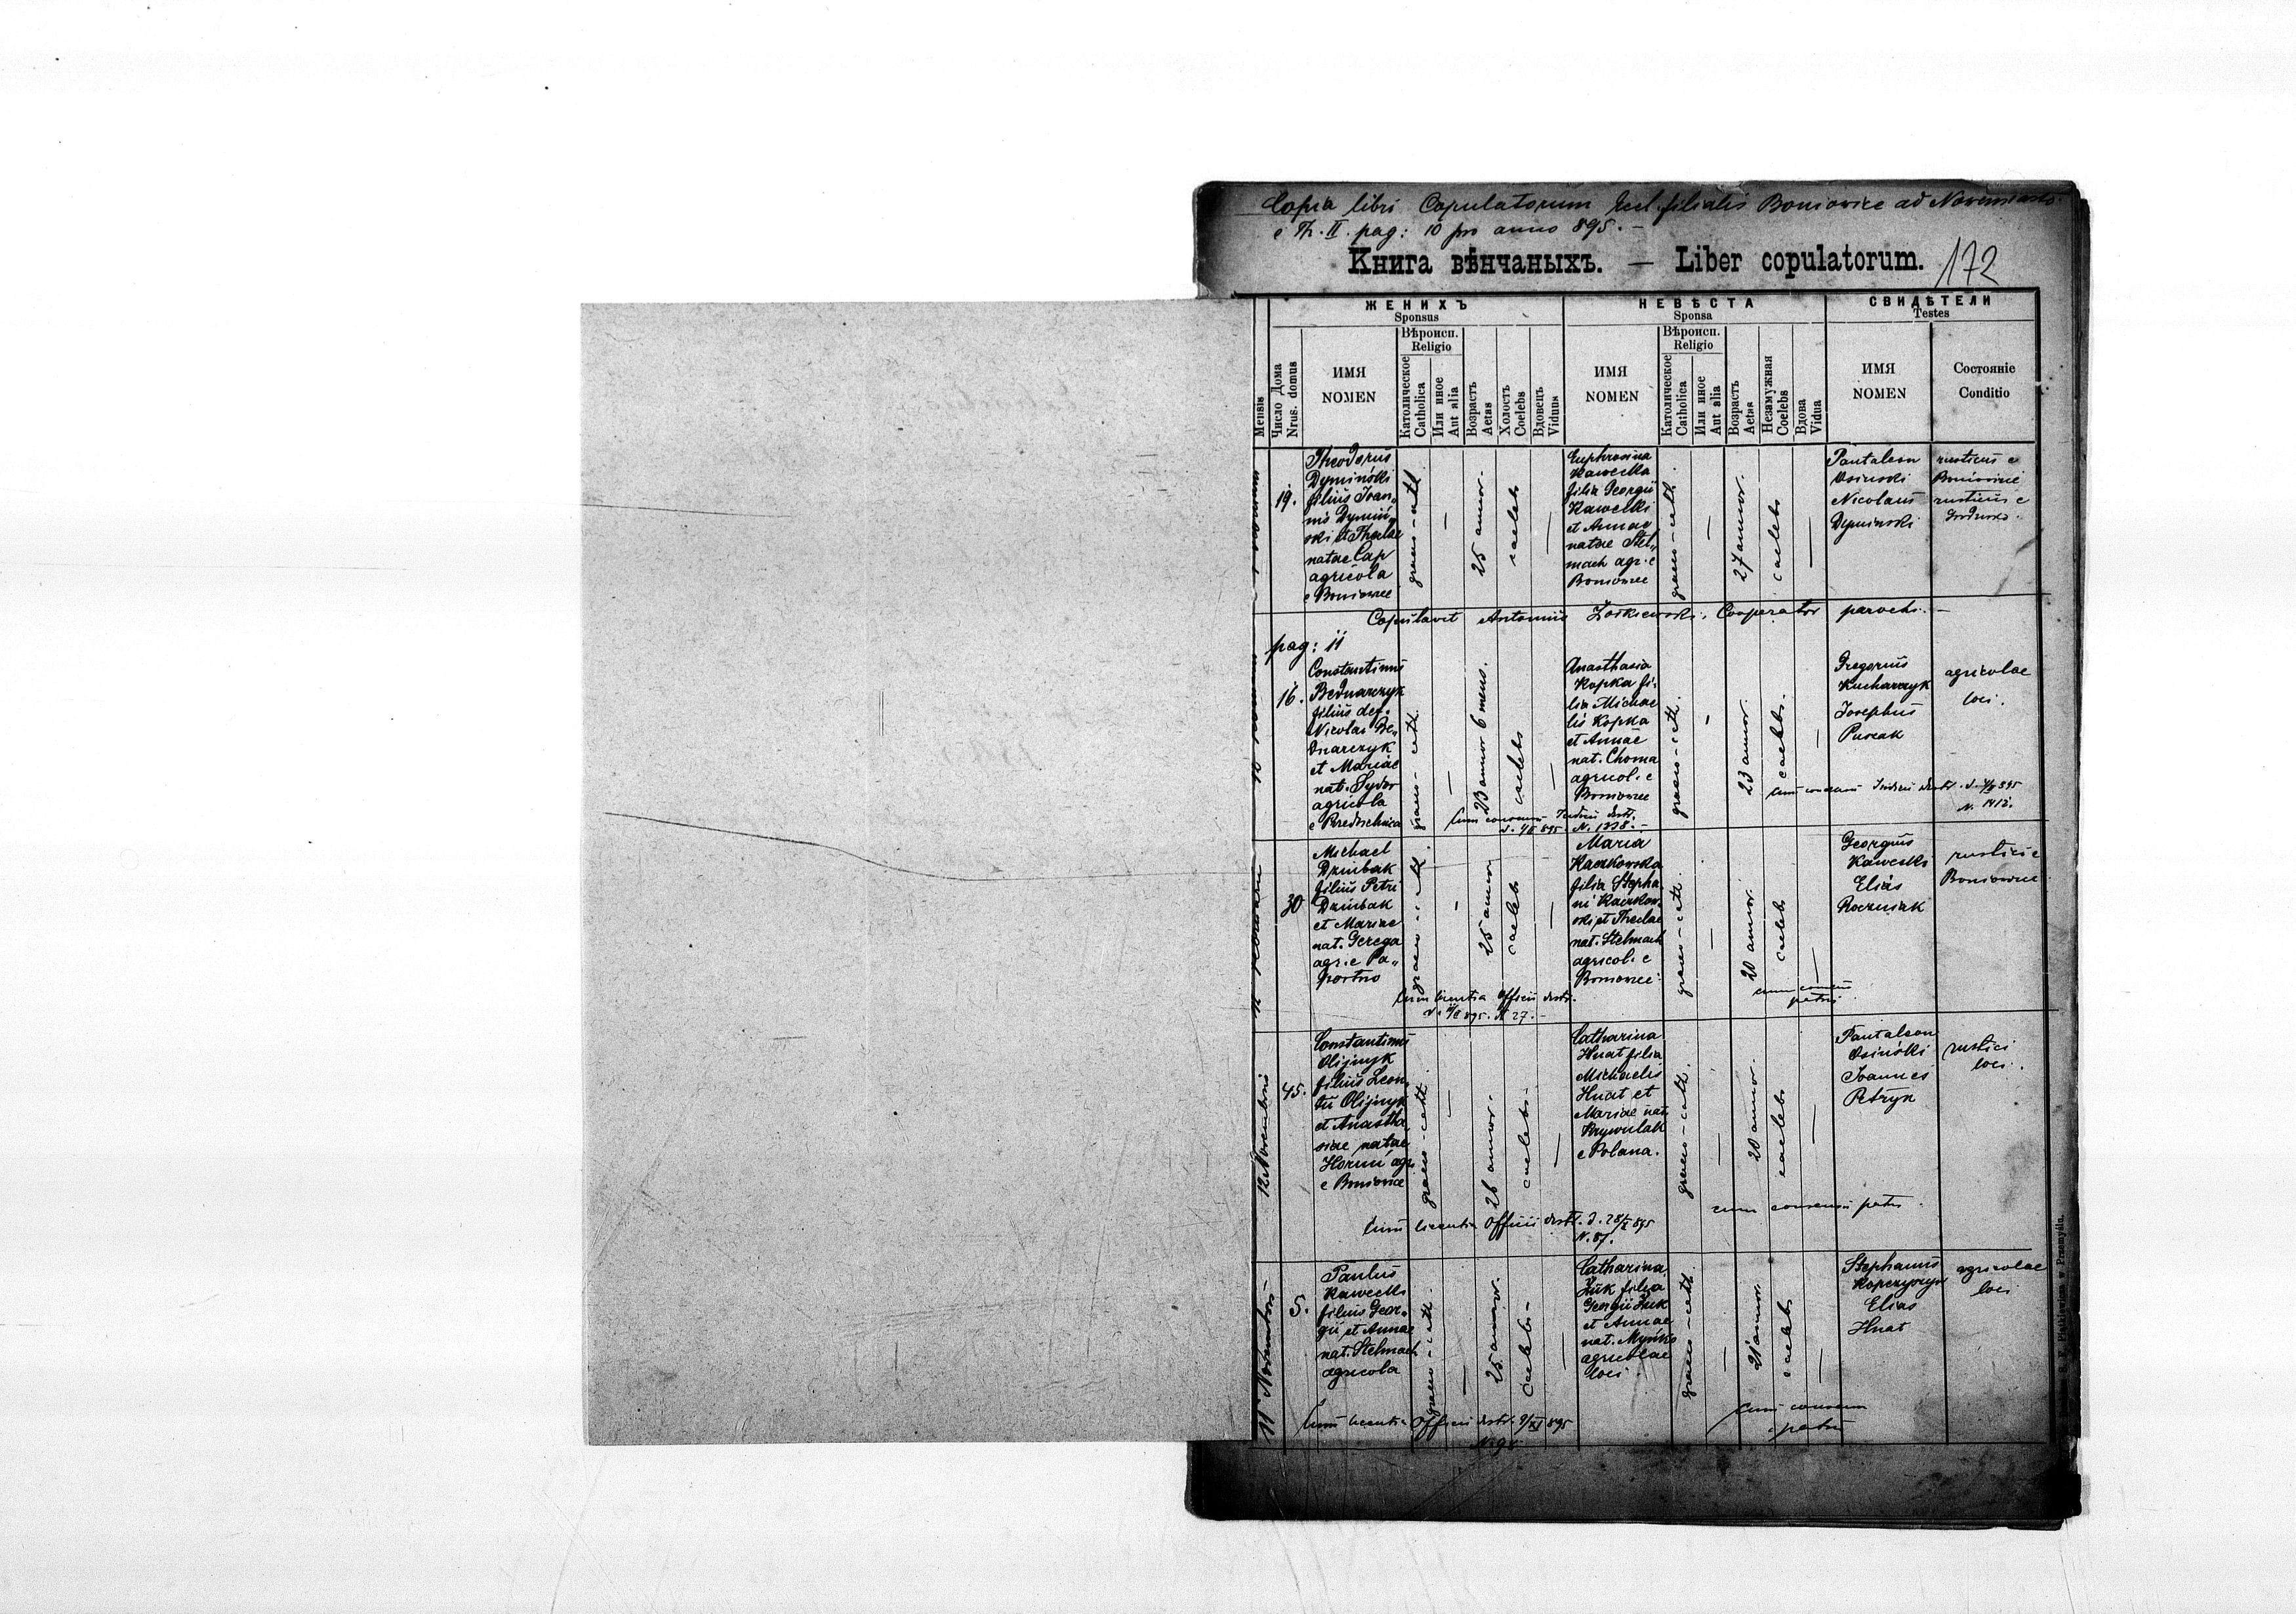 Copia libri Copulatorum Eccl. filialis Boniowice ad Novemiasto
e Th. II. pag: 10 pro anno 895. –
Книга вѣнчаныхъ. — Liber copulatorum. 172
ЖЕНИХЪ
Sponsus
НЕВѢСТА
Sponsa
СВИДѢТЕЛИ
Testes
Mensis
Число Дома
Nrus. domus
ИМЯ
NOMEN
Вѣроисп.
Religio
Католическое
Catholica
Или иное
Aut alia
Возрастъ
Aetas
Холостъ
Coelebs
Вдовецъ
Viduus
ИМЯ
NOMEN
Вѣроисп.
Religio
Католическое
Catholica
Или иное
Aut alia
Возрастъ
Aetas
Незамужная
Coelebs
Вдова
Vidua
ИМЯ
NOMEN
Состояніе
Conditio
19.
Theodorus
Dymiński
filius Joan„
nis Dymiń„
ski et Theclae
natae Cap
agricola
e Boniowce
graeco-cath.
25 annor.
caelebs
Euphrosina
Kawecka
filia Georgii
Kawecki
et Annae
natae Stel„
mach agr. e
Boniowce
graeco-cath.
27 annor.
caelebs
Pantaleon
Osinski
Nicolaus
Dyminski
rusticus e
Boniowice
rusticus e
Copulavit Antonius Cooperator parochi. –
pag: 11
16.
Constantinus
Bednarczyk
filius def.
Nicolai Be„
dnarczyk
et Mariae
nat. Sydor
agricola
e Predzielnica
graeco-cath.
23 annor 6 mens.
caelebs
Anasthasia
Kopka fi-
lia Michae
lis Kopka
et Annae
nat. Choma
agricol. e
Boniowce
graeco-cath.
23 annor.
caelebs.
Gregorius
Kucharczyk
Josephus
Puszak
agricolae
loci.
cum consensu Judicii distr.
N. 1412.
Cum consensu Judicii distr.
N. 1338. –
30
Michael
Dziubak
filius Petri
Dziubak
et Mariae
nat. Gerega
agr. e Pa„
portno
graeco-cath.
25 annor
caelebs
Maria
Kaczkowska
filia Stepha
ni Kaczkow
ski et Theclae
nat. Stelmach
agricol. e
Boniowce
graeco-cath.
20 annor.
caelebs
Georgius
Kawecki
Elias
Roczniak
rustici e
Boniowce
Cum licentia Officii distr.
895. N 27. –
cum consensu
patris
12 Novembris
45.
Constantinus
Olijnyk
filius Leon„
tii Olijnyk
et Anastha
siae natae
agr.
e Boniowice
graeco-cath.
26 annor.
caelebs.
Catharina
Hnat filia
Michaelis
Hnat et
Mariae nat.
Krywulak
e Polana.
graeco-cath.
20 annor.
caelebs
Pantaleon
Osiński
Joannes
Petryk
rustici
loci.
Cum licentia Officii distr. d. 28/X 895
N. 87.
cum consensu patris.
Novembris
5.
Paulus
Kawecki
filius Geor„
gii et Annae
nat. Stelmach
agricola
graeco-cath.
25 annor.
Caelebs
Catharina
Żuk filia
Georgii Żuk
et Annae
nat. Myńko
agricolae
loci.
graeco-cath.
21 annor.
caelebs
Stephanus
Kopczyczyn
Elias
Hnat
agricolae
loci
Cum licentia Officii distr. 9/XI 895
Cum consensu
patris